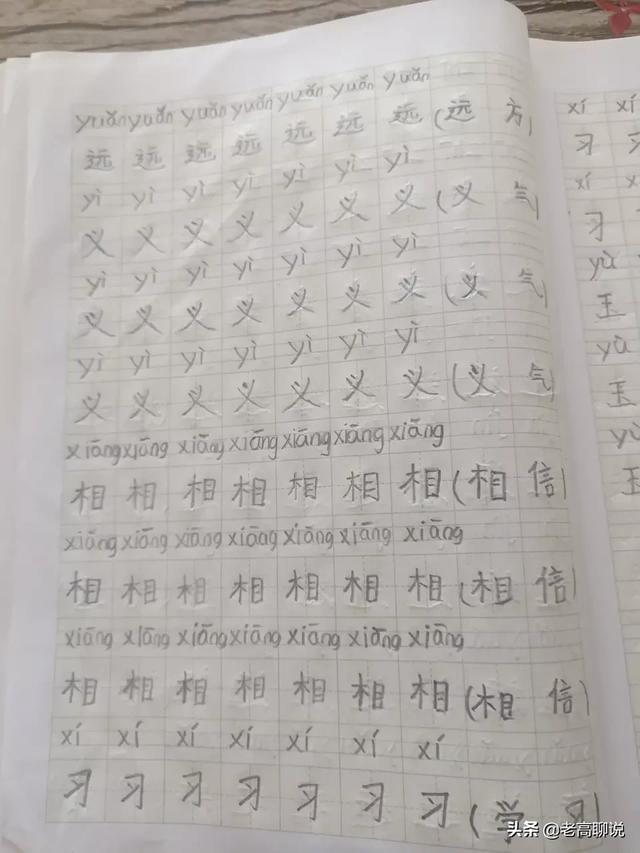 yuǎn yuǎn yuǎn yuǎn yuǎn yuǎn yuǎn
远 远 远 远 远 远 远 (远 方)
yì yì yì yì yì yì yì
义 义 义 义 义 义 义 (义 气)
yì yì yì yì yì yì yì
义 义 义 义 义 义 义 (义 气)
yì yì yì yì yì yì yì
义 义 义 义 义 义 义 (义 气)
xiāng xiāng xiāng xiāng xiāng xiāng xiāng
相 相 相 相 相 相 相 (相 信)
xiāng xiāng xiāng xiāng xiāng xiāng xiāng
相 相 相 相 相 相 相 (相 信)
xiāng xiāng xiāng xiāng xiāng xiāng xiāng
相 相 相 相 相 相 相 (相 信)
xí xí xí xí xí xí xí
习 习 习 习 习 习 习 (学 习)
xí xí
习 习
xí x
习
yù
玉
yù
玉
头条 @老高聊说